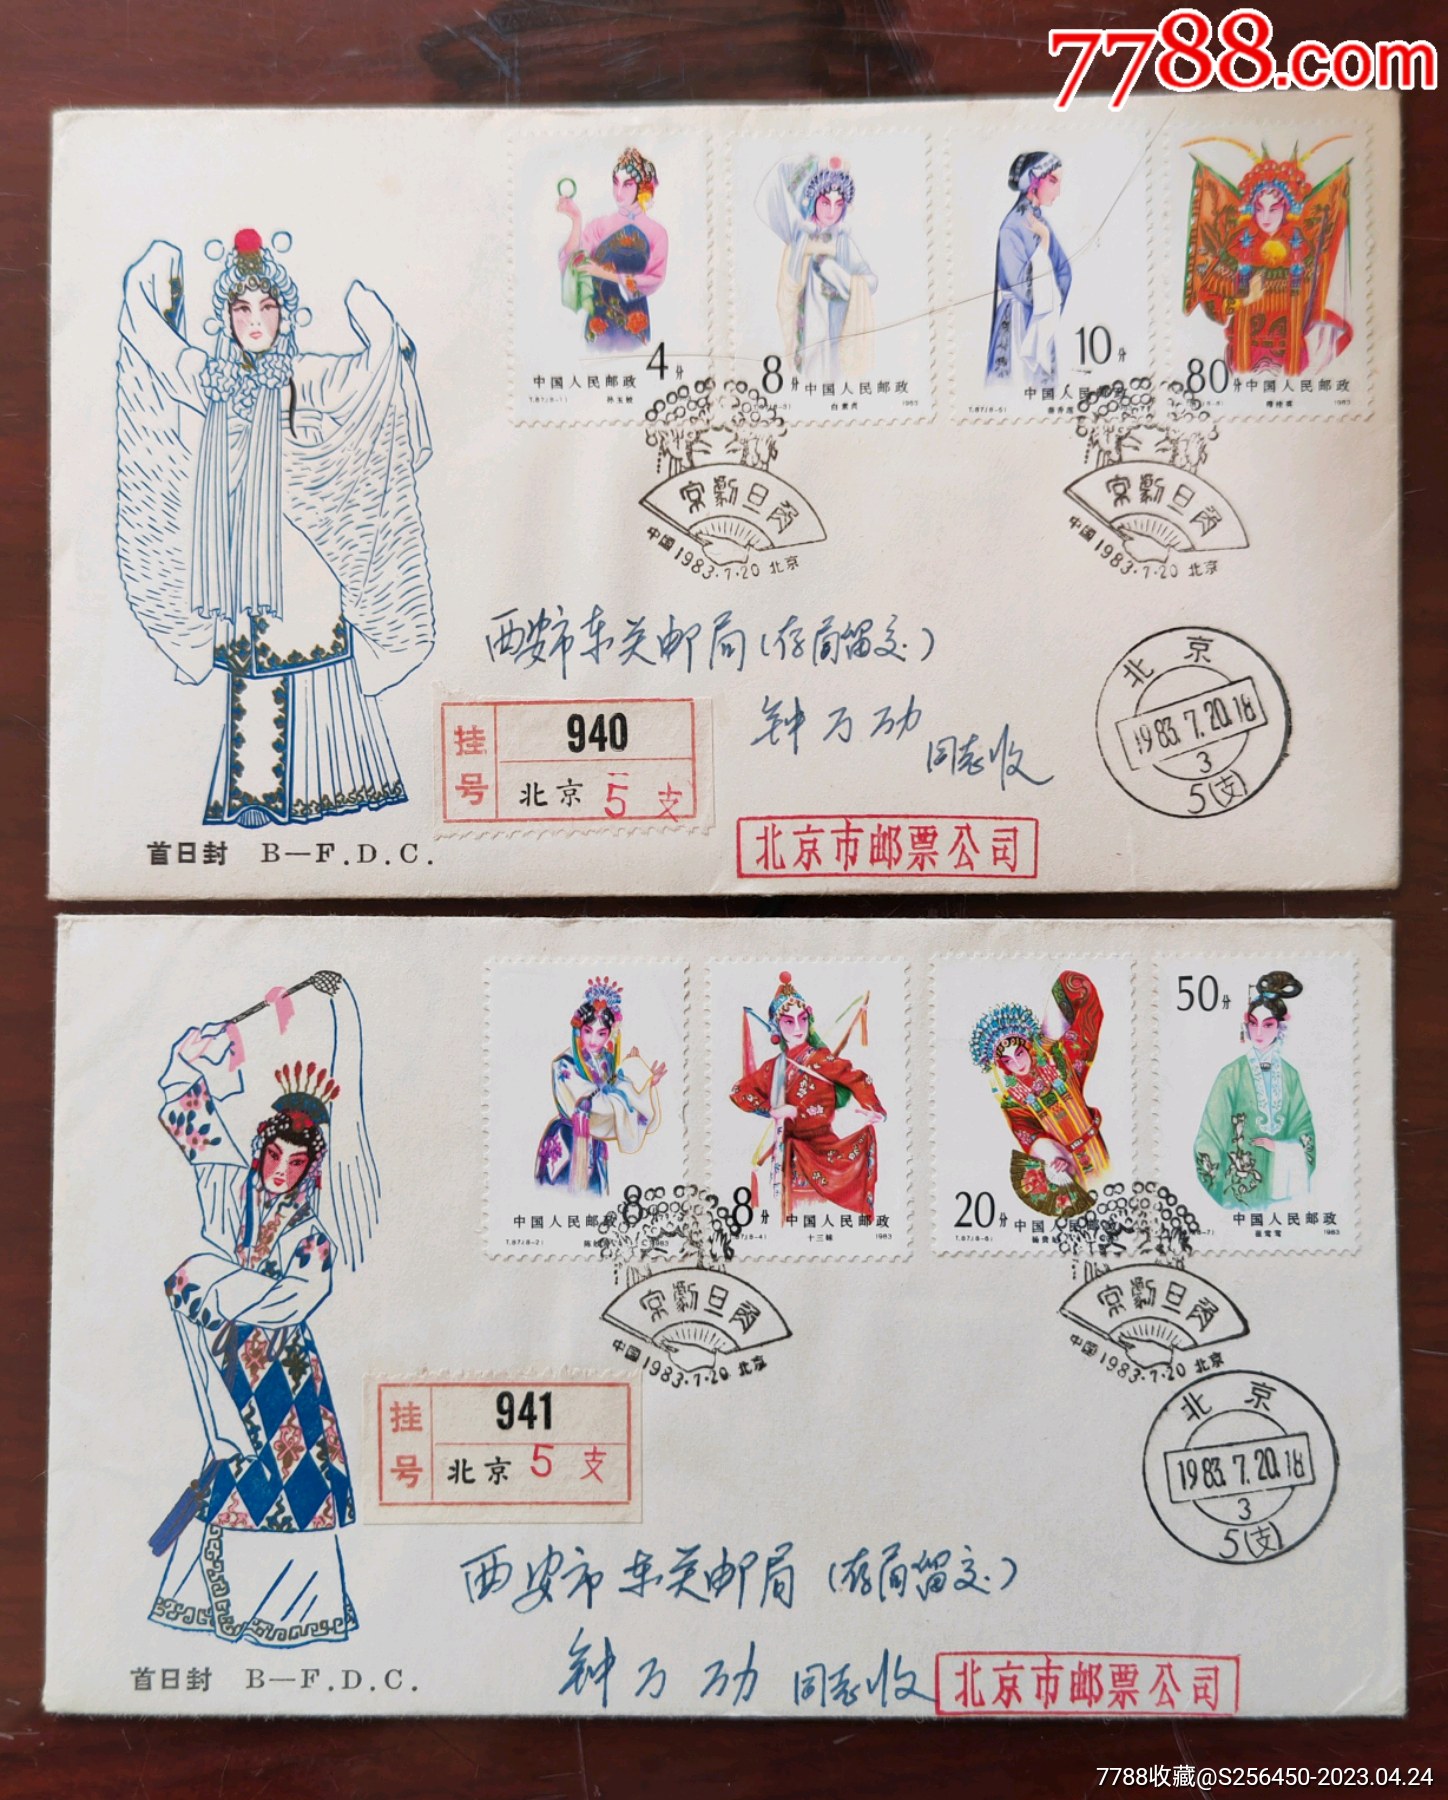 7788.com
4分
8分
10分
80分
中国人民邮政
中国人民邮政
中国人民邮政
中国人民邮政
T.87.(8-1) 孙玉姣
白素贞 1983
T.87.(8-5)
1983
京剧旦角
中国1983.7.20 北京
京剧旦角
中国1983.7.20 北京
西安市东关邮局(存局留交)
钟万劢
同志收
挂号
940
北京 5 支
北京
1983.7.20.18
3
5(支)
北京市邮票公司
首日封 B—F.D.C.
8
8分
20分
50分
中国人民邮政
中国人民邮政
中国人民邮政
中国人民邮政
T.87.(8-2)
1983
十三妹 1983
T.87.(8-6)
崔莺莺 1983
京剧旦角
中国1983.7.20 北京
京剧旦角
中国1983.7.20 北京
挂号
941
北京 5 支
北京
1983.7.20.18
3
5(支)
西安市东关邮局(存局留交)
钟万劢 同志收
北京市邮票公司
首日封 B—F.D.C.
7788收藏@S256450-2023.04.24